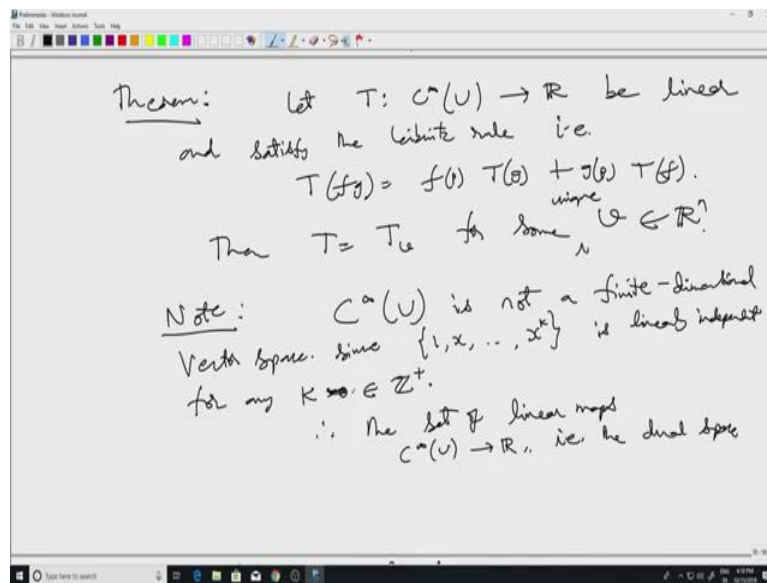 Preliminaries - Windows Journal
File Edit View Insert Actions Tools Help
Theorem: Let T: C^∞(U) → ℝ be linear
and satisfy the Leibnitz rule i.e.
T(fg) = f(p) T(g) + g(p) T(f).
unique
Then T = T_v for some v ∈ ℝⁿ.
Note: C^∞(U) is not a finite-dimensional
Vector space. since {1, x, .., x^k} is linearly independent
for any K ∈ ℤ⁺.
∴ The set of linear maps
C^∞(U) → ℝ, i.e. the dual space
Type here to search